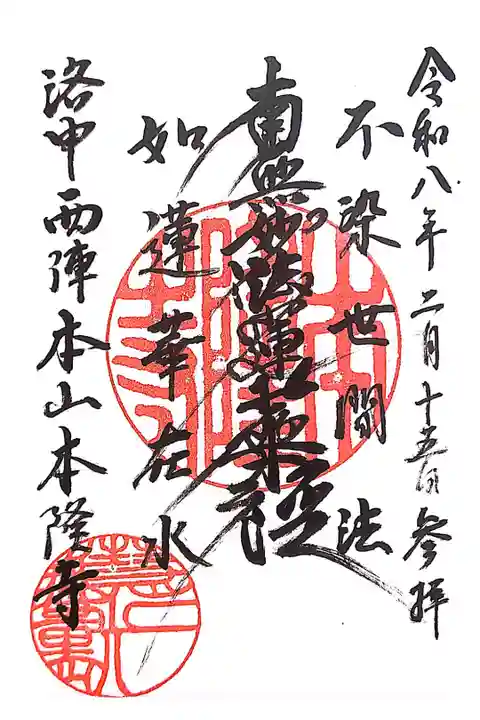 令和八年二月十五日参拝
不染世間法
南無妙法蓮華経
如蓮華在水
洛中西陣本山本隆寺